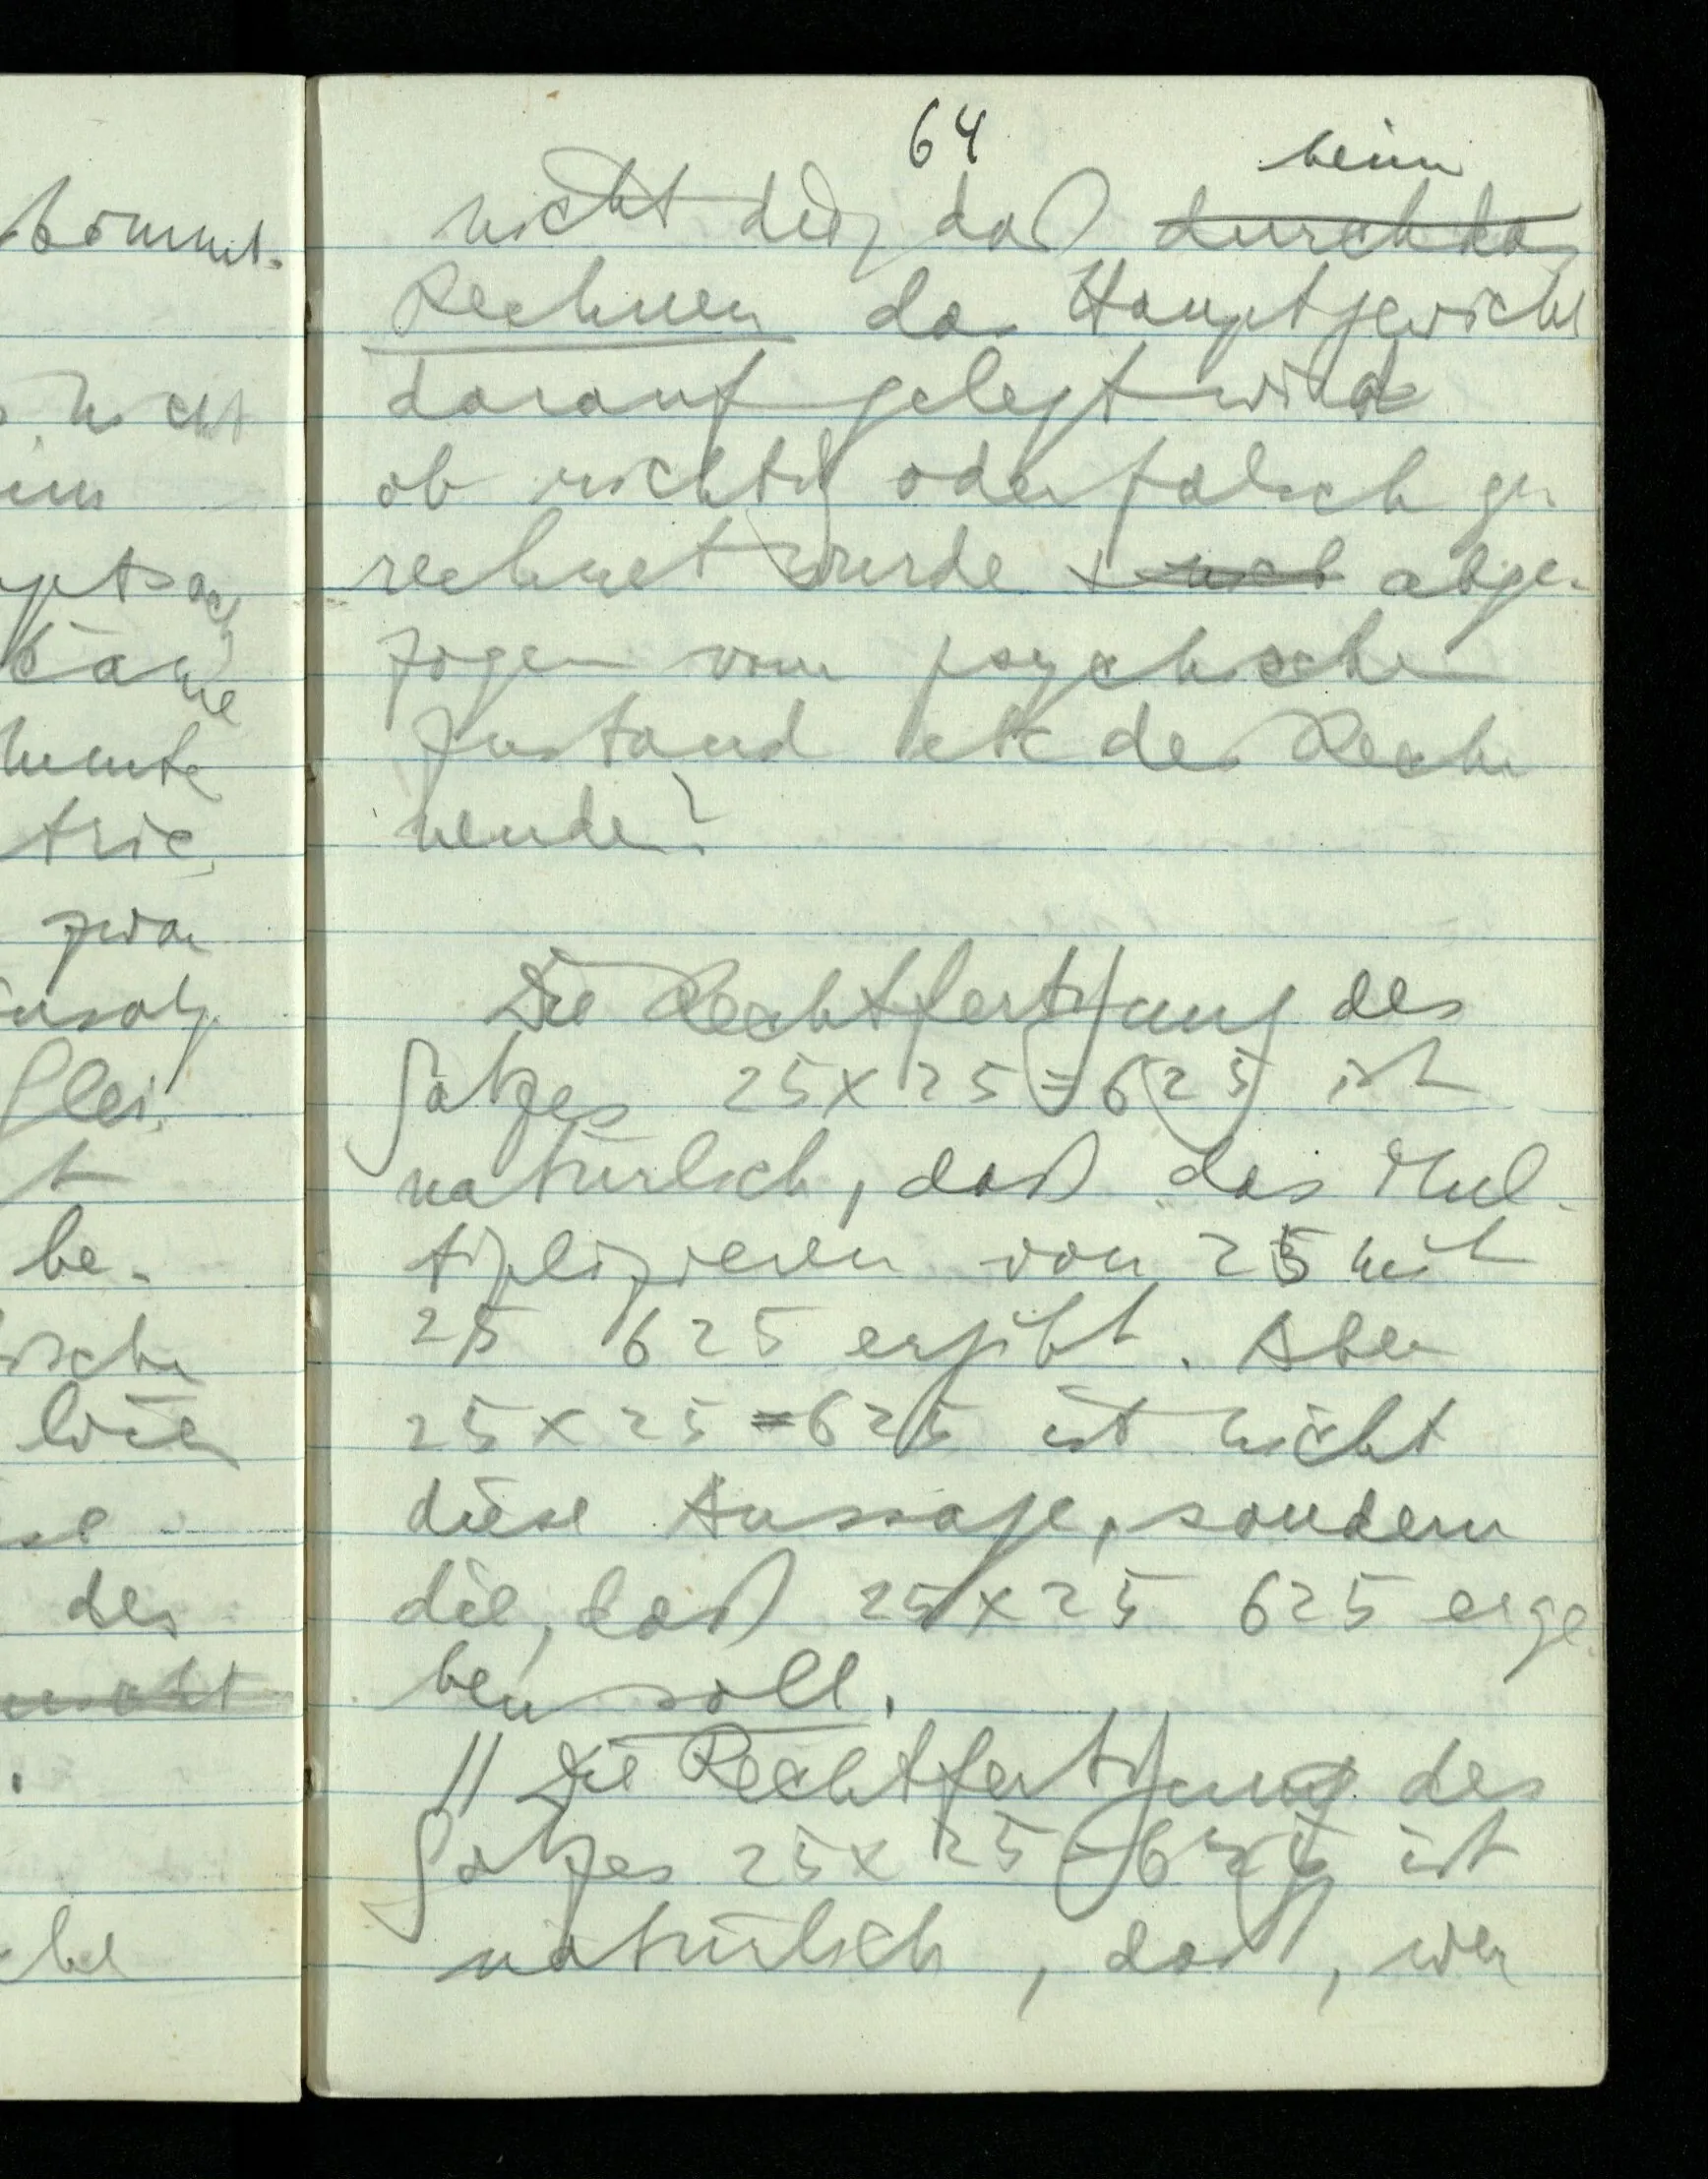 kommt.
nicht
64
beim
nicht dies, daß durch das
Rechnen das Hauptgewicht
darauf gelegt wird
ob richtig oder falsch ge-
rechnet wurde + abge-
zogen vom psychischen
Zustand etc der Rech
nenden?
Die Rechtfertigung des
Satzes 25x25=625 ist
natürlich, daß das Mul-
tiplizieren von 25 mit
25 625 ergibt. Aber
25x25=625 ist nicht
diese Aussage, sondern
die, daß 25x25 625 erge
ben soll.
// Die Rechtfertigung des
Satzes 25x25=625 ist
natürlich, daß, wer
zwar
be-
des